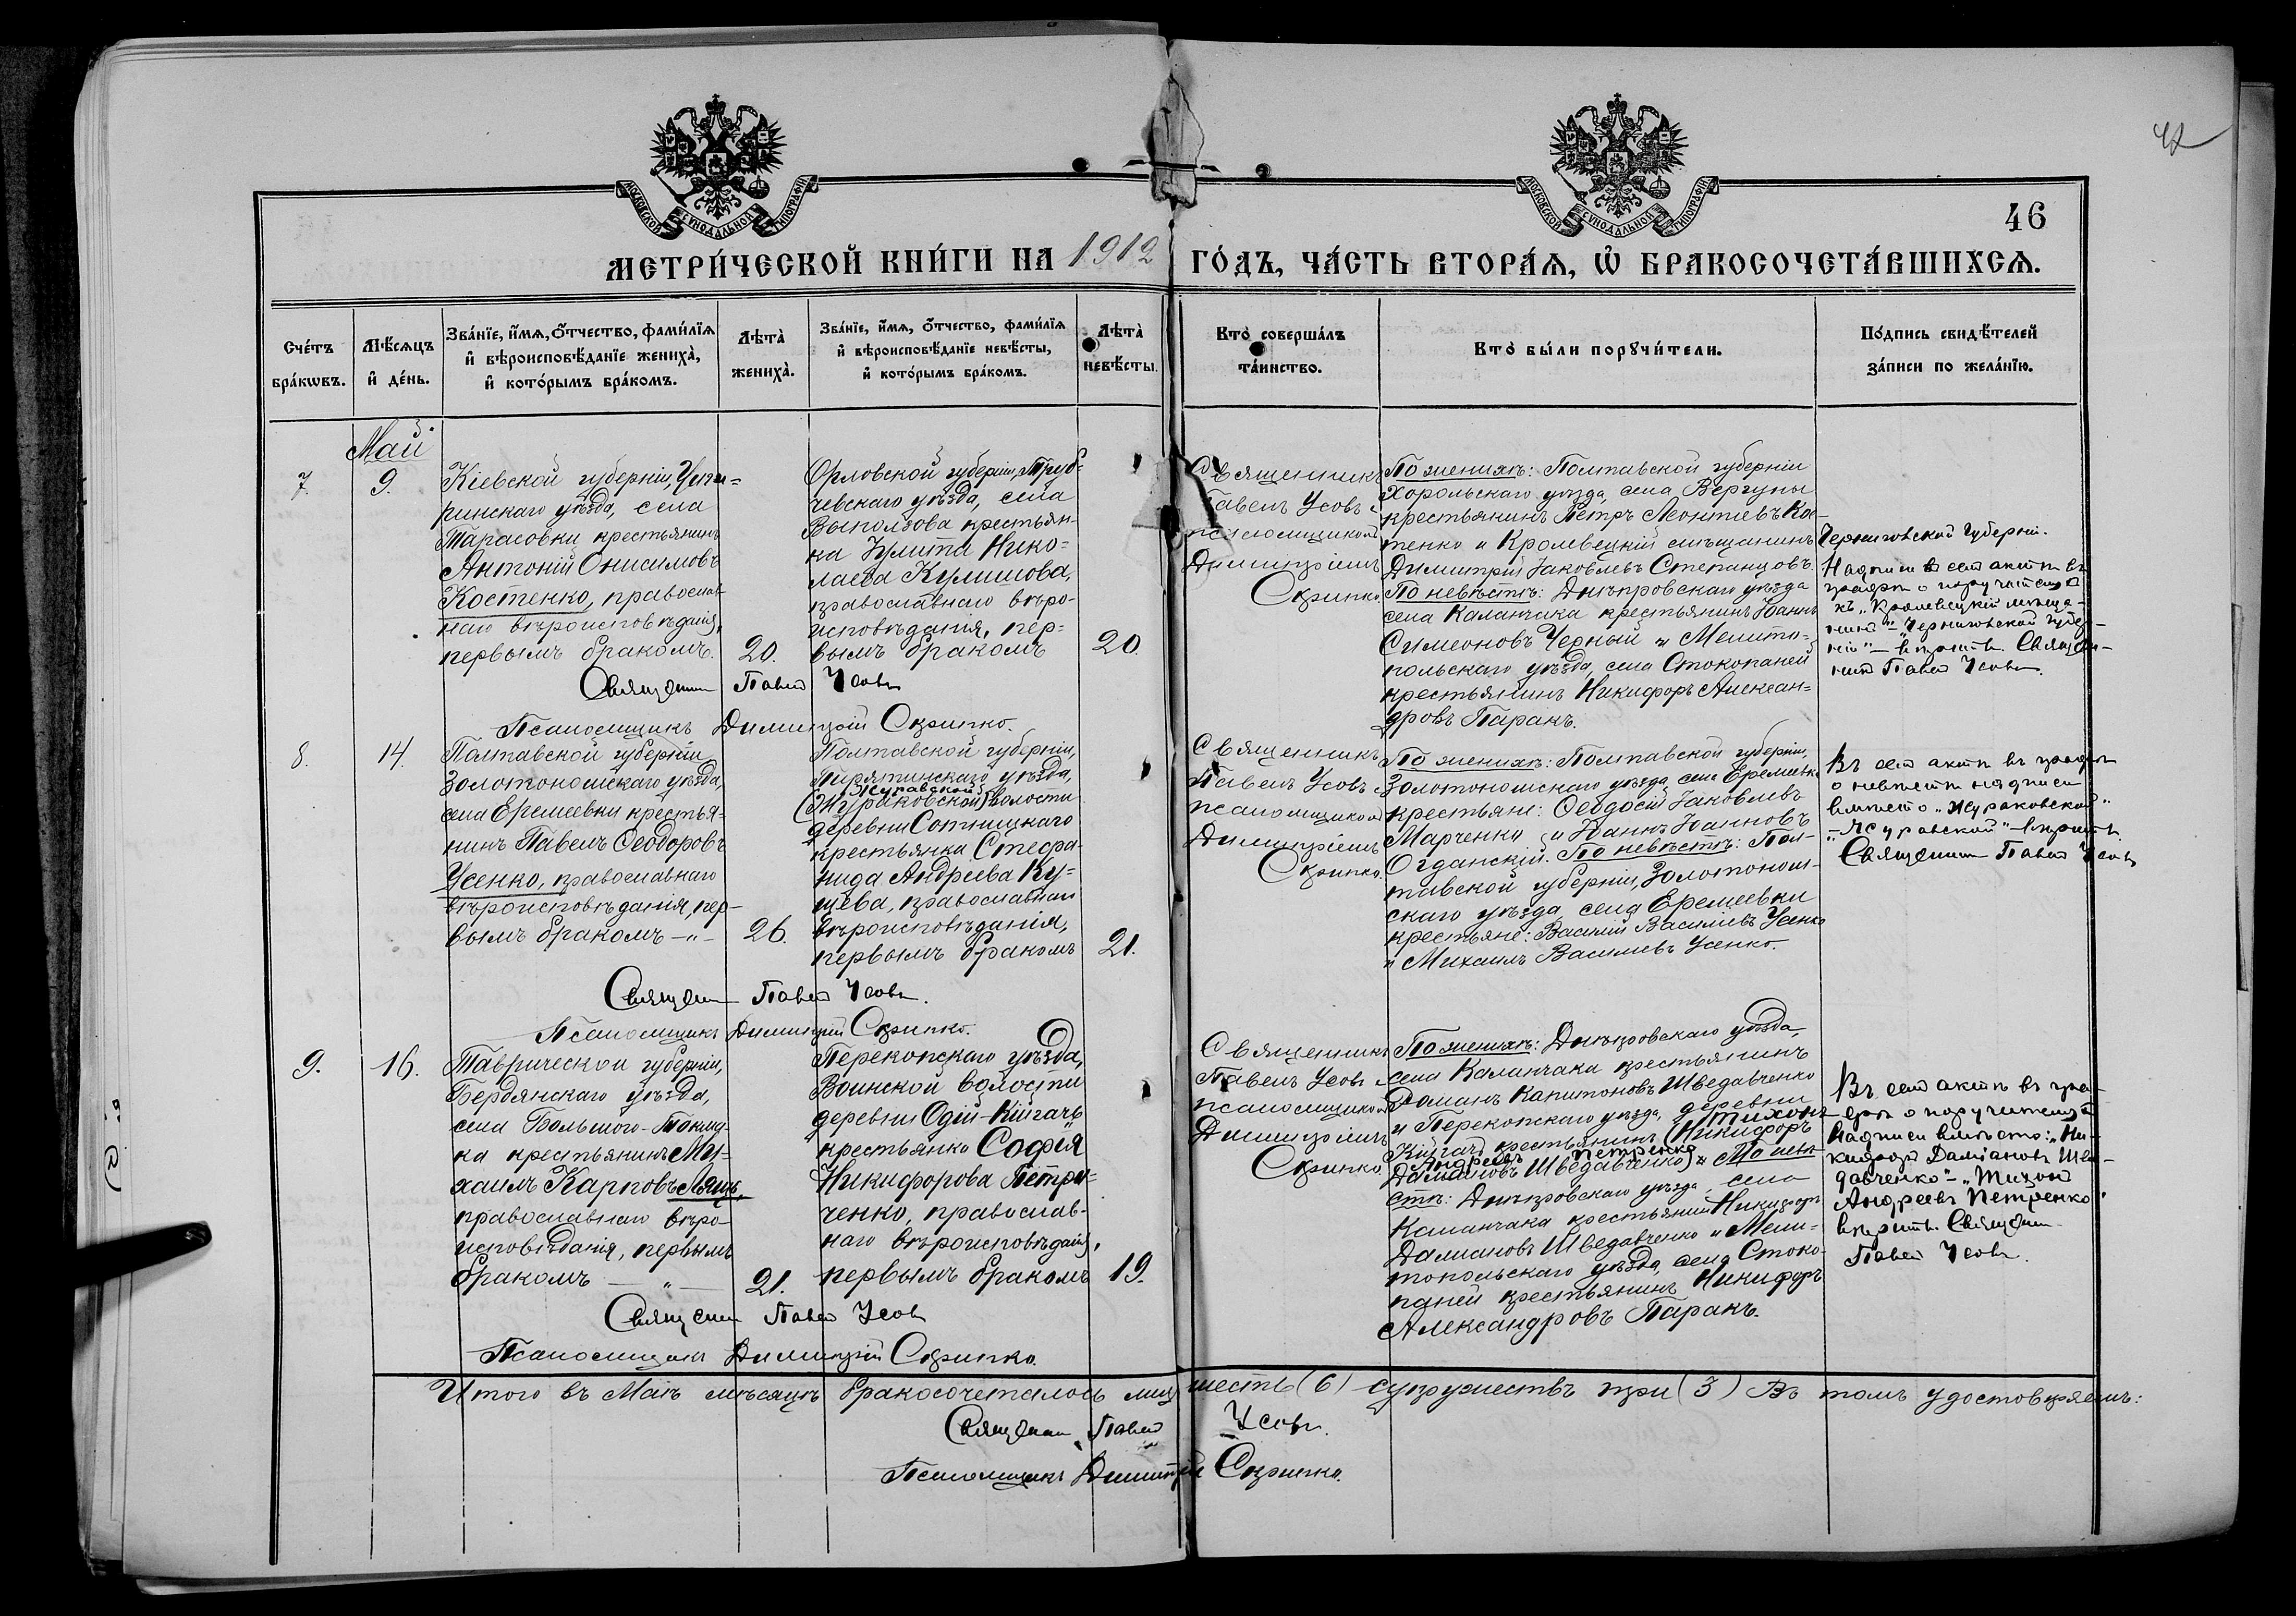 42
46
МОСКОВСКОЙ СѴНОДАЛЬНОЙ ТИПОГРАФІИ
МОСКОВСКОЙ СѴНОДАЛЬНОЙ ТИПОГРАФІИ
МЕТРИ́ЧЕСКОЙ КНИ́ГИ НА 1912 ГО́ДЪ, ЧА́СТЬ ВТОРА́Ѧ, Ѽ БРАКОСОЧЕТА́ВШИХСѦ.
Сче́тъ
бра́кωвъ.
Мѣ́сѧцъ
и҆ де́нь.
Зва́нїе, и҆́мѧ, ѻ҆́тчество, фами́лїѧ
и҆ вѣроисповѣ́данїе жениха̀,
и҆ кото́рымъ бра́комъ.
Лѣ́та
жениха̀.
Зва́нїе, и҆́мѧ, ѻ҆́тчество, фами́лїѧ
и҆ вѣроисповѣ́данїе невѣ́сты,
и҆ кото́рымъ бра́комъ.
Лѣ́та
невѣ́сты.
Кто̀ соверша́лъ
та́инство.
Кто̀ бы́ли порꙋчи́тели.
По́дпись свидѣ́телей
за́писи по жела́нїю.
Май
7.
9.
Кіевской губерніи, Чиги-
ринскаго уѣзда, села
Тарасовки крестьянинъ
Антоній Онисимовъ
Костенко, православ-
наго вѣроисповѣданія,
первымъ бракомъ.
20.
Орловской губерніи, Труб-
чевскаго уѣзда, села
Выползова крестьян-
ка Іулита Нико-
лаева Кулишова,
православнаго вѣро-
исповѣданія, пер-
вымъ бракомъ
20.
Священникъ
Павелъ Усовъ с
псаломщикомъ
Димитріемъ
Скрипко.
По женихѣ: Полтавской губерніи
Хорольскаго уѣзда, села Вергуны
крестьянинъ Петръ Леонтіевъ Кос-
тенко и Кролевецкій мѣщанинъ
Димитрій Іаковлевъ Степанцовъ.
По невѣстѣ: Днѣпровскаго уѣзда
села Каланчака крестьянинъ Іоаннъ
Симеоновъ Черный и Мелито-
польскаго уѣзда, села Стокопаней
крестьянинъ Никифоръ Алексан-
дровъ Паракъ.
Черниговской Губерніи.
Надписи въ сем актѣ въ
графѣ о поручителяхъ
къ „Кролевецкій мѣща-
нинъ" – „Черниговской Губер-
ніи" – вѣрить. Священ-
никъ Павелъ Усовъ.
Священник Павел Усовъ
Псаломщикъ Димитрій Скрипко.
8.
14.
Полтавской губерніи
Золотоношскаго уѣзда,
села Еремеевки крестья-
нинъ Павелъ Ѳеодоровъ
Усенко, православнаго
вѣроисповѣданія, пер-
вымъ бракомъ – „ –
26.
Полтавской губерніи,
Пирятинскаго уѣзда,
Журавской
(Жураковской) волости
деревни Сотницкаго
крестьянка Стефа-
нида Андреева Ку-
щева, православнаго
вѣроисповѣданія,
первымъ бракомъ
21.
Священникъ
Павелъ Усовъ с
псаломщикомъ
Димитріемъ
Скрипко.
По женихѣ: Полтавской губерніи,
Золотоношскаго уѣзда, села Еремеевки
крестьяне: Ѳеодосій Іаковлевъ
Марченко и Іоаннъ Іоанновъ
Огданскій. По невѣстѣ: Пол-
тавской губерніи, Золотонош-
скаго уѣзда, села Еремеевки
крестьяне: Василій Василіевъ Усенко
и Михаилъ Василіевъ Усенко.
Въ сем актѣ въ графѣ
о невѣстѣ надписи
вмѣсто „Жураковской"
– „Журавской" – вѣрить.
Священник Павел Усовъ
Священник Павел Усовъ.
Псаломщикъ Димитрій Скрипко.
9.
16.
Таврической губерніи,
Бердянскаго уѣзда,
села Большого-Токма-
ка крестьянинъ Ми-
хаилъ Карповъ Лящъ,
православнаго вѣро-
исповѣданія, первымъ
бракомъ – „ –
21.
Перекопскаго уѣзда,
Воинской волости
деревни Одій-Кійгачъ
крестьянка Софія
Никифорова Петри-
ченко, православ-
наго вѣроисповѣданія,
первымъ бракомъ
19.
Священникъ
Павелъ Усовъ с
псаломщикомъ
Димитріемъ
Скрипко.
По женихѣ: Днѣпровскаго уѣзда,
села Каланчака крестьянинъ
Романъ Капитоновъ Шведавченко
и Перекопскаго уѣзда, деревни
Тихонъ
Кійгачъ крестьянинъ (Никифоръ
Андреевъ Петренко
Даміановъ Шведавченко) и По невѣ-
стѣ: Днѣпровскаго уѣзда, села
Каланчака крестьянинъ Никифоръ
Даміановъ Шведавченко и Мели-
топольскаго уѣзда, села Стоко-
паней крестьянинъ Никифоръ
Александровъ Паракъ.
Въ сем актѣ въ гра-
фѣ о поручителяхъ
надписи вмѣсто: „Ни-
кифоръ Даміановъ Шве-
давченко" – „Тихонъ
Андреевъ Петренко"
вѣрить. Священник
Павел Усовъ.
Священник Павел Усовъ
Псаломщикъ Димитрій Скрипко.
Итого въ Маѣ мѣсяцѣ бракосочеталось лицъ шесть (6) супружествъ три (3) Въ томъ удостовѣряемъ:
Священник Павел Усовъ.
Псаломщикъ Димитрій Скрипко.